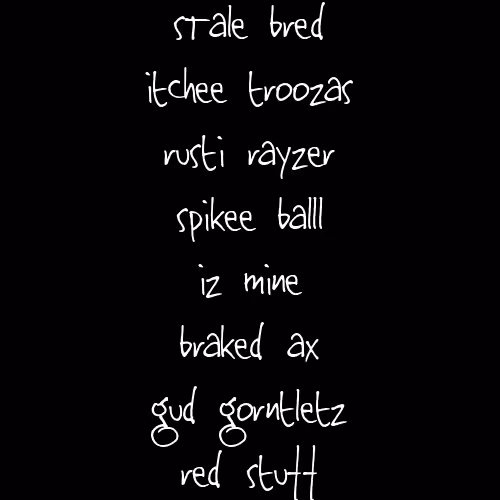 stale bred
itchee troozas
rusti rayzer
spikee balll
iz mine
braked ax
gud gorntletz
red stuff